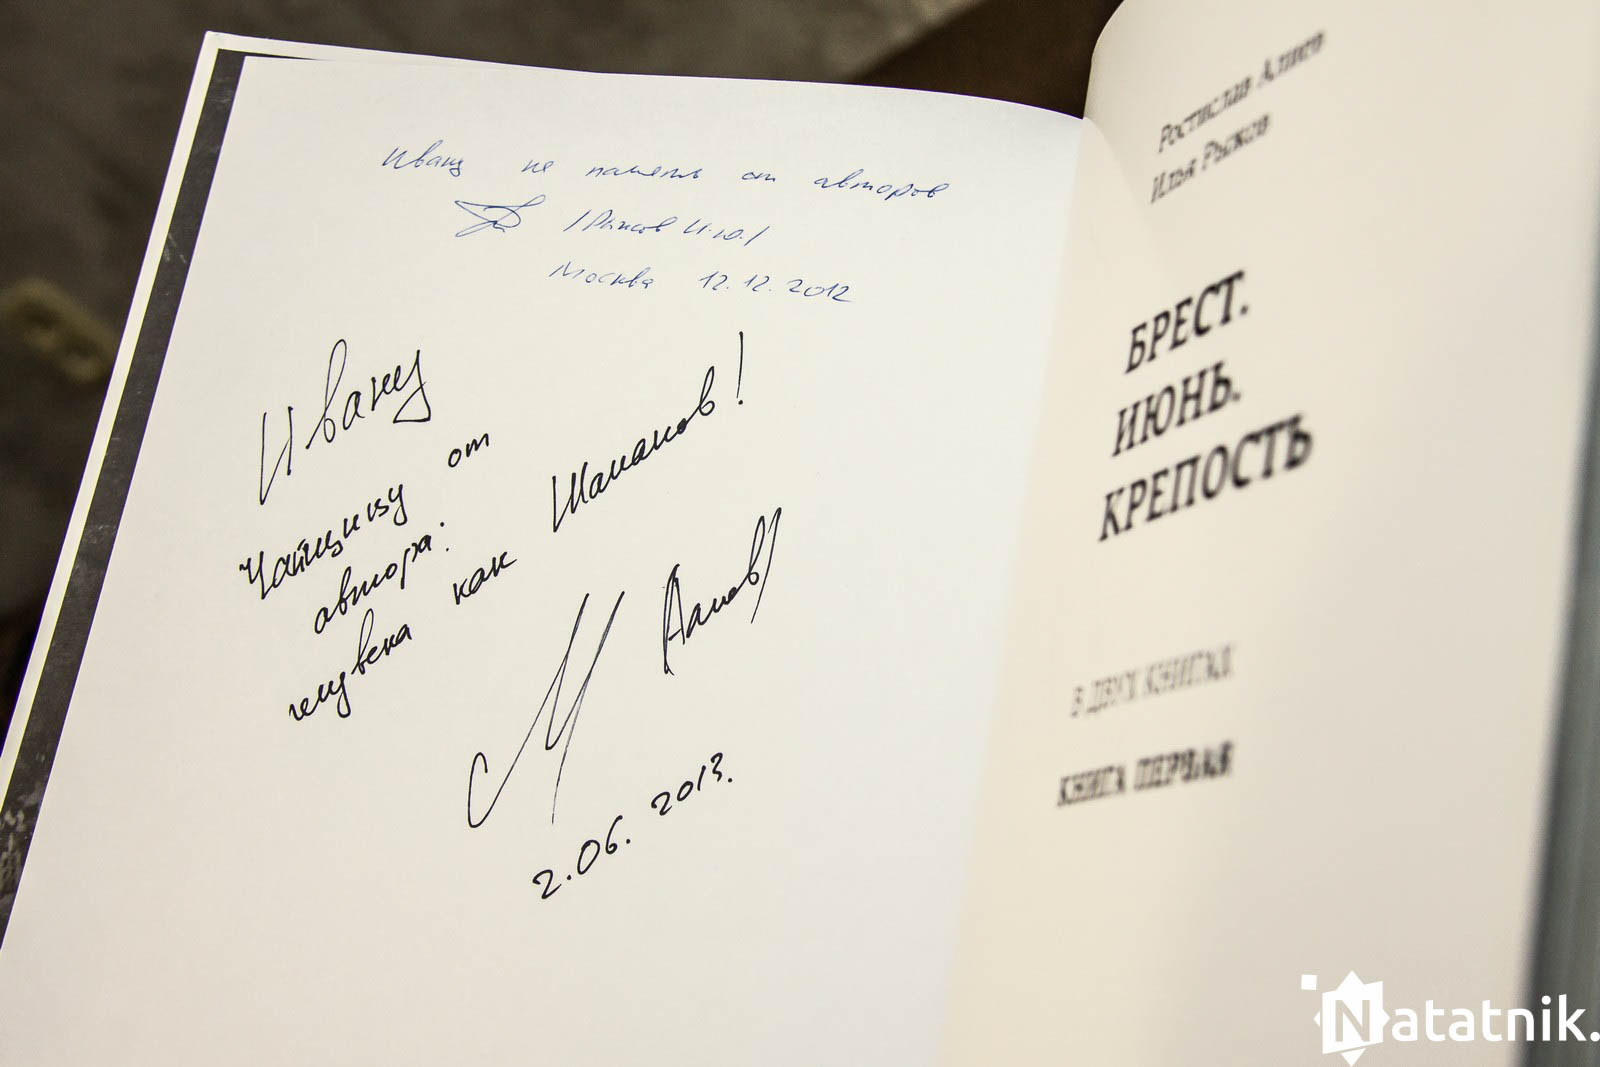 Ивану на память от авторов
/Рыжов И.Ю./
Москва 12.12.2012
Ивану
Чайчицу от
автора.
человека как Шаманов!
Алиев
2.06.2013.
Ростислав Алиев
Илья Рыжов
БРЕСТ.
ИЮНЬ.
КРЕПОСТЬ
В ДВУХ КНИГАХ
КНИГА ПЕРВАЯ
Natatnik.